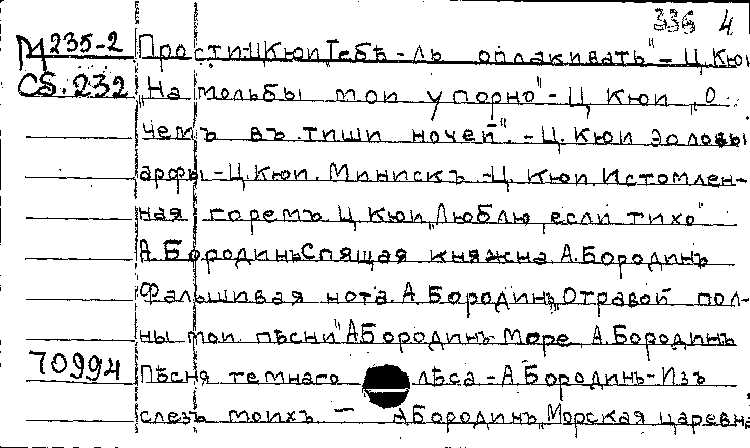 336 4
М 235-2 Прости-Ц Кюи "Тебѣ-ль оплакивать" - Ц. Кюи
Сб. 232 "На мольбы мои упорно" - Ц Кюи "О
чемъ въ тиши ночей" - Ц. Кюи Эоловы
арфы - Ц. Кюи. Минискъ - Ц. Кюи. Истомлен-
ная горемъ Ц Кюи "Люблю, если тихо"
А. Бородинъ Спящая княжна А. Бородинъ
Фальшивая нота. А. Бородинъ "Отравой пол-
ны мои пѣсни" А Бородинъ Море А. Бородинъ
70994 Пѣсня темнаго лѣса - А. Бородинъ - Изъ
слезъ моихъ - А Бородинъ "Морская царевн